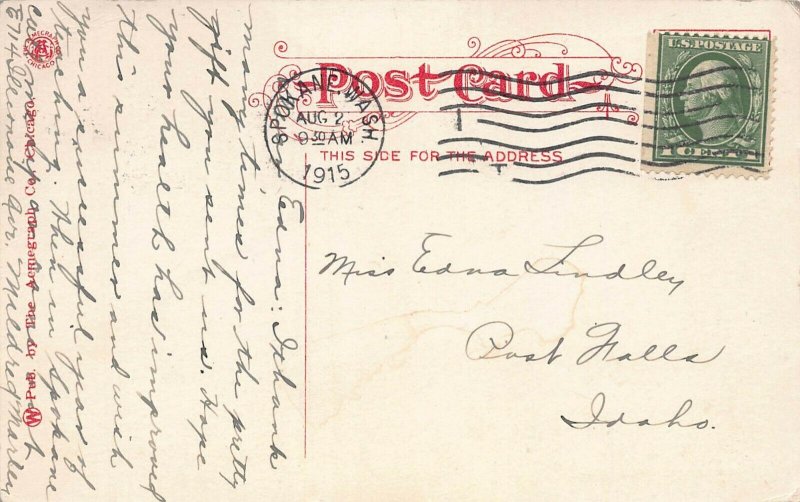 Post Card
THIS SIDE FOR THE ADDRESS
SPOKANE WASH
AUG 2
9 30 AM
1915
U.S. POSTAGE
Miss Edna Lindley
Post Falls
Idaho.
Edna: I thank
many times for the pretty
gift you sent us. Hope
your health has improved
this summer and wish
you a successful year of
teaching. When in Spokane
E 714 Illinois Ave. Mildred Marley
W Pub. by The Acmegraph Co., Chicago.
ACMEGRAPH
CHICAGO